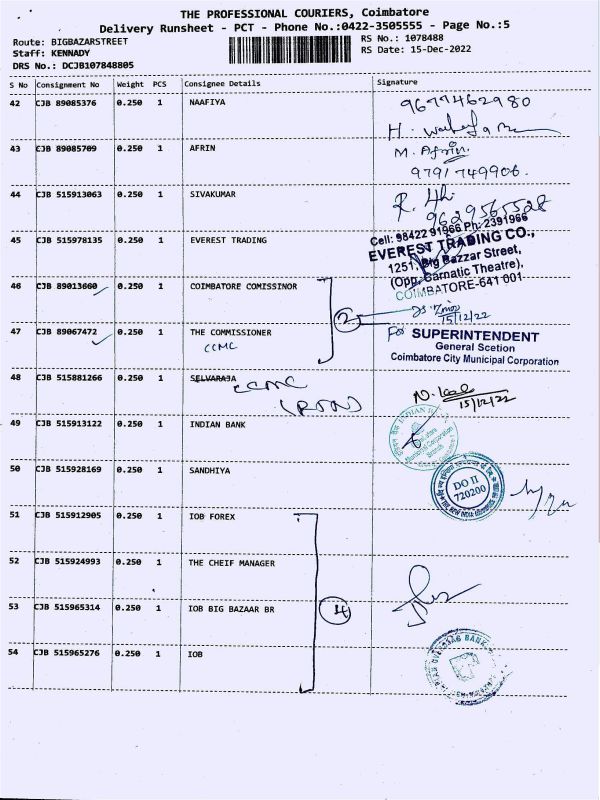 THE PROFESSIONAL COURIERS, Coimbatore
Delivery Runsheet - PCT - Phone No.:0422-3505555 - Page No.:5
Route: BIGBAZARSTREET
Staff: KENNADY
DRS No.: DCJB107848805
RS No.: 1078488
RS Date: 15-Dec-2022
S No Consignment No Weight PCS Consignee Details Signature
42 CJB 89085376 0.250 1 NAAFIYA
43 CJB 89085709 0.250 1 AFRIN M. Afrin.
9791749906.
44 CJB 515913063 0.250 1 SIVAKUMAR
9629565528
45 CJB 515978135 0.250 1 EVEREST TRADING
Cell: 98422 91966 Ph: 2391966
EVEREST TRADING CO.,
1251, Big Bazzar Street,
(Opp. Carnatic Theatre),
COIMBATORE-641 001
46 CJB 89013660 0.250 1 COIMBATORE COMISSINOR
2
15/12/22
47 CJB 89067472 0.250 1 THE COMMISSIONER
CCMC
For SUPERINTENDENT
General Scetion
Coimbatore City Municipal Corporation
48 CJB 515881266 0.250 1 SELVARAJA
CCMC
15/12/22
49 CJB 515913122 0.250 1 INDIAN BANK
50 CJB 515928169 0.250 1 SANDHIYA
DO II
720200
51 CJB 515912905 0.250 1 IOB FOREX
52 CJB 515924993 0.250 1 THE CHEIF MANAGER
53 CJB 515965314 0.250 1 IOB BIG BAZAAR BR
4
54 CJB 515965276 0.250 1 IOB